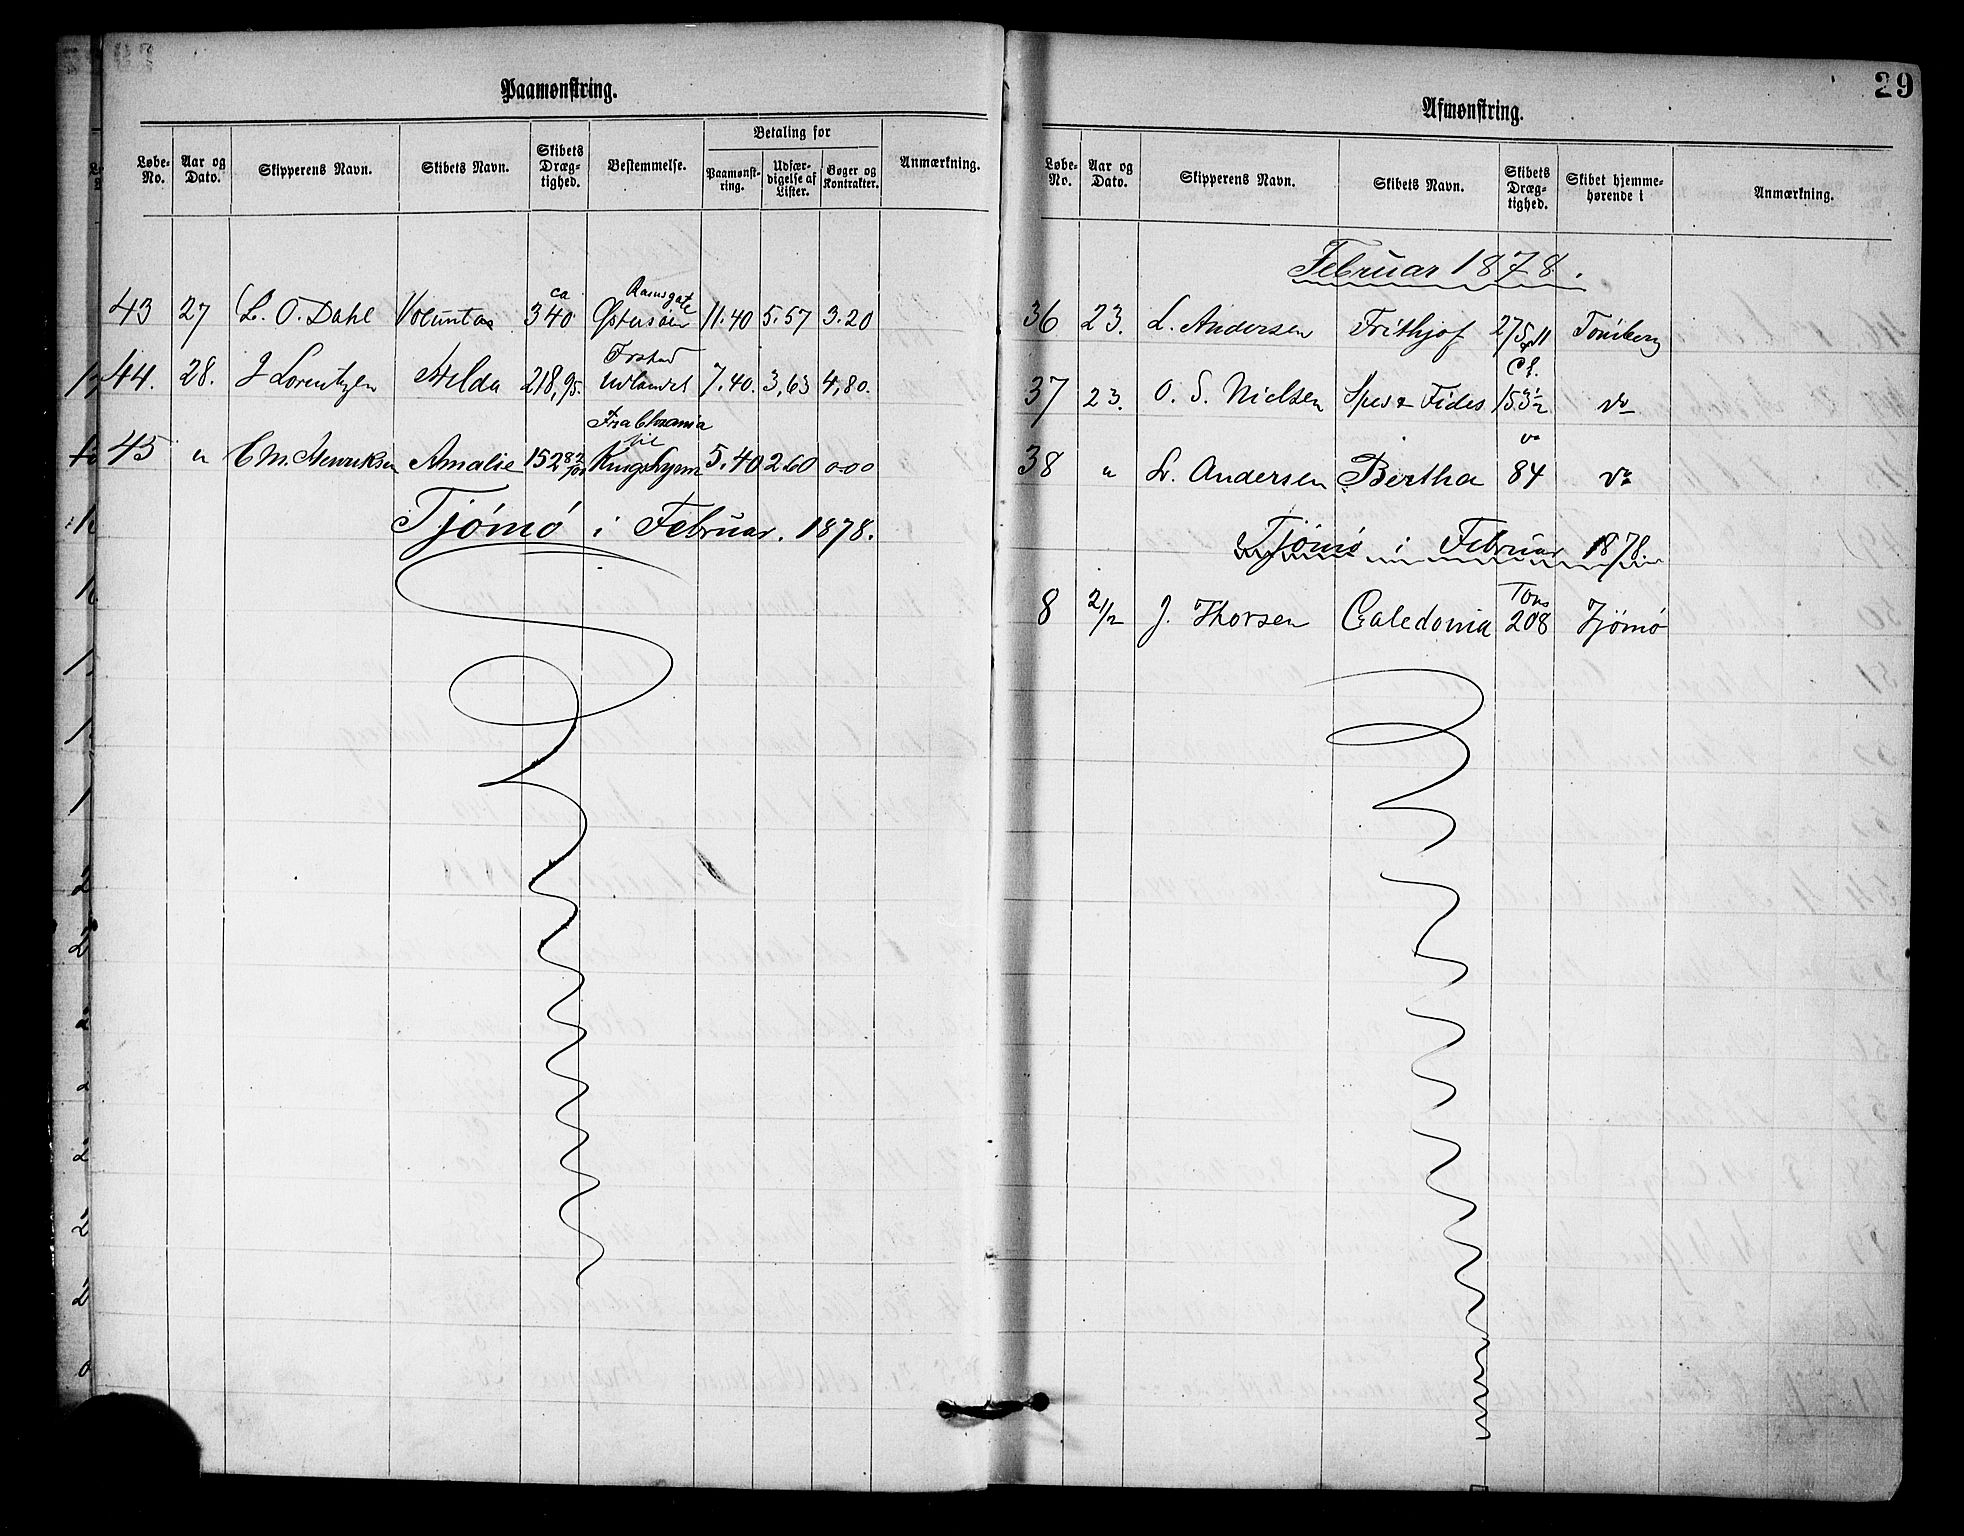 Paamønstring.
Løbe-No. Aar og Dato. Skipperens Navn. Skibets Navn. Skibets Dræg-tighed. Bestemmelse. Betaling for Paamønst-ring. Udfær-digelse af Lister. Bøger og Kontrakter. Anmærkning.
43 27 L. O. Dahl Voluntas ca 340 Ramsgate Østersøen 11.40 5.57 3.20
44. 28. J Lorentzen Hilda 218,95. Udlandet 7.40. 3,63 4,80.
45 " C M. Henriksen Amalie 152 82/100 Fra Chrania til Kings Lynn 5.40 2.60 000
Tjømø i Februar. 1878.
29
Afmønstring.
Løbe-No. Aar og Dato. Skipperens Navn. Skibets Navn. Skibets Dræg-tighed. Skibet hjemme-hørende i Anmærkning.
Februar 1878.
36 23. L. Andersen Frithjof Tønsberg
37 23. O. S. Nielsen Spes & Fides Cl. 153½ do
38 " L. Andersen Bertha do 84 do
Tjømø i Februar 1878.
8 2/2 J. Thorsen Caledonia Tons 208 Tjømø